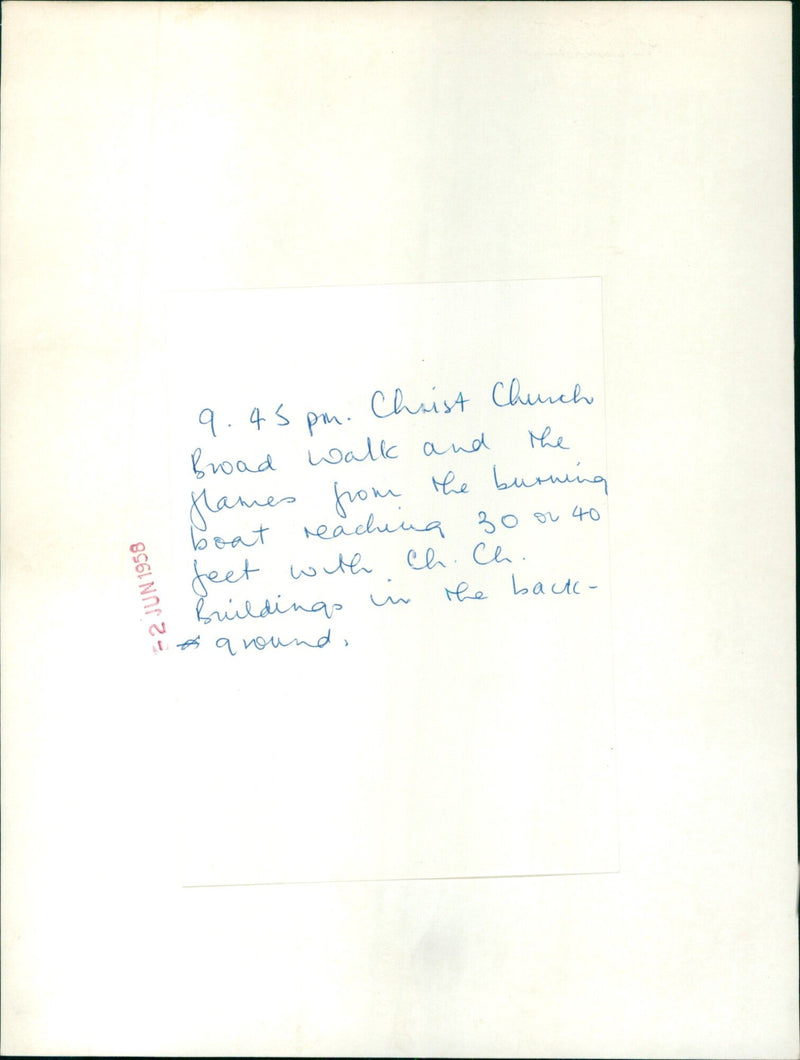 9.45 pm. Christ Church
Broad Walk and the
flames from the burning
boat reaching 30 or 40
feet with Ch. Ch.
Buildings in the back-
ground.
-2 JUN 1958